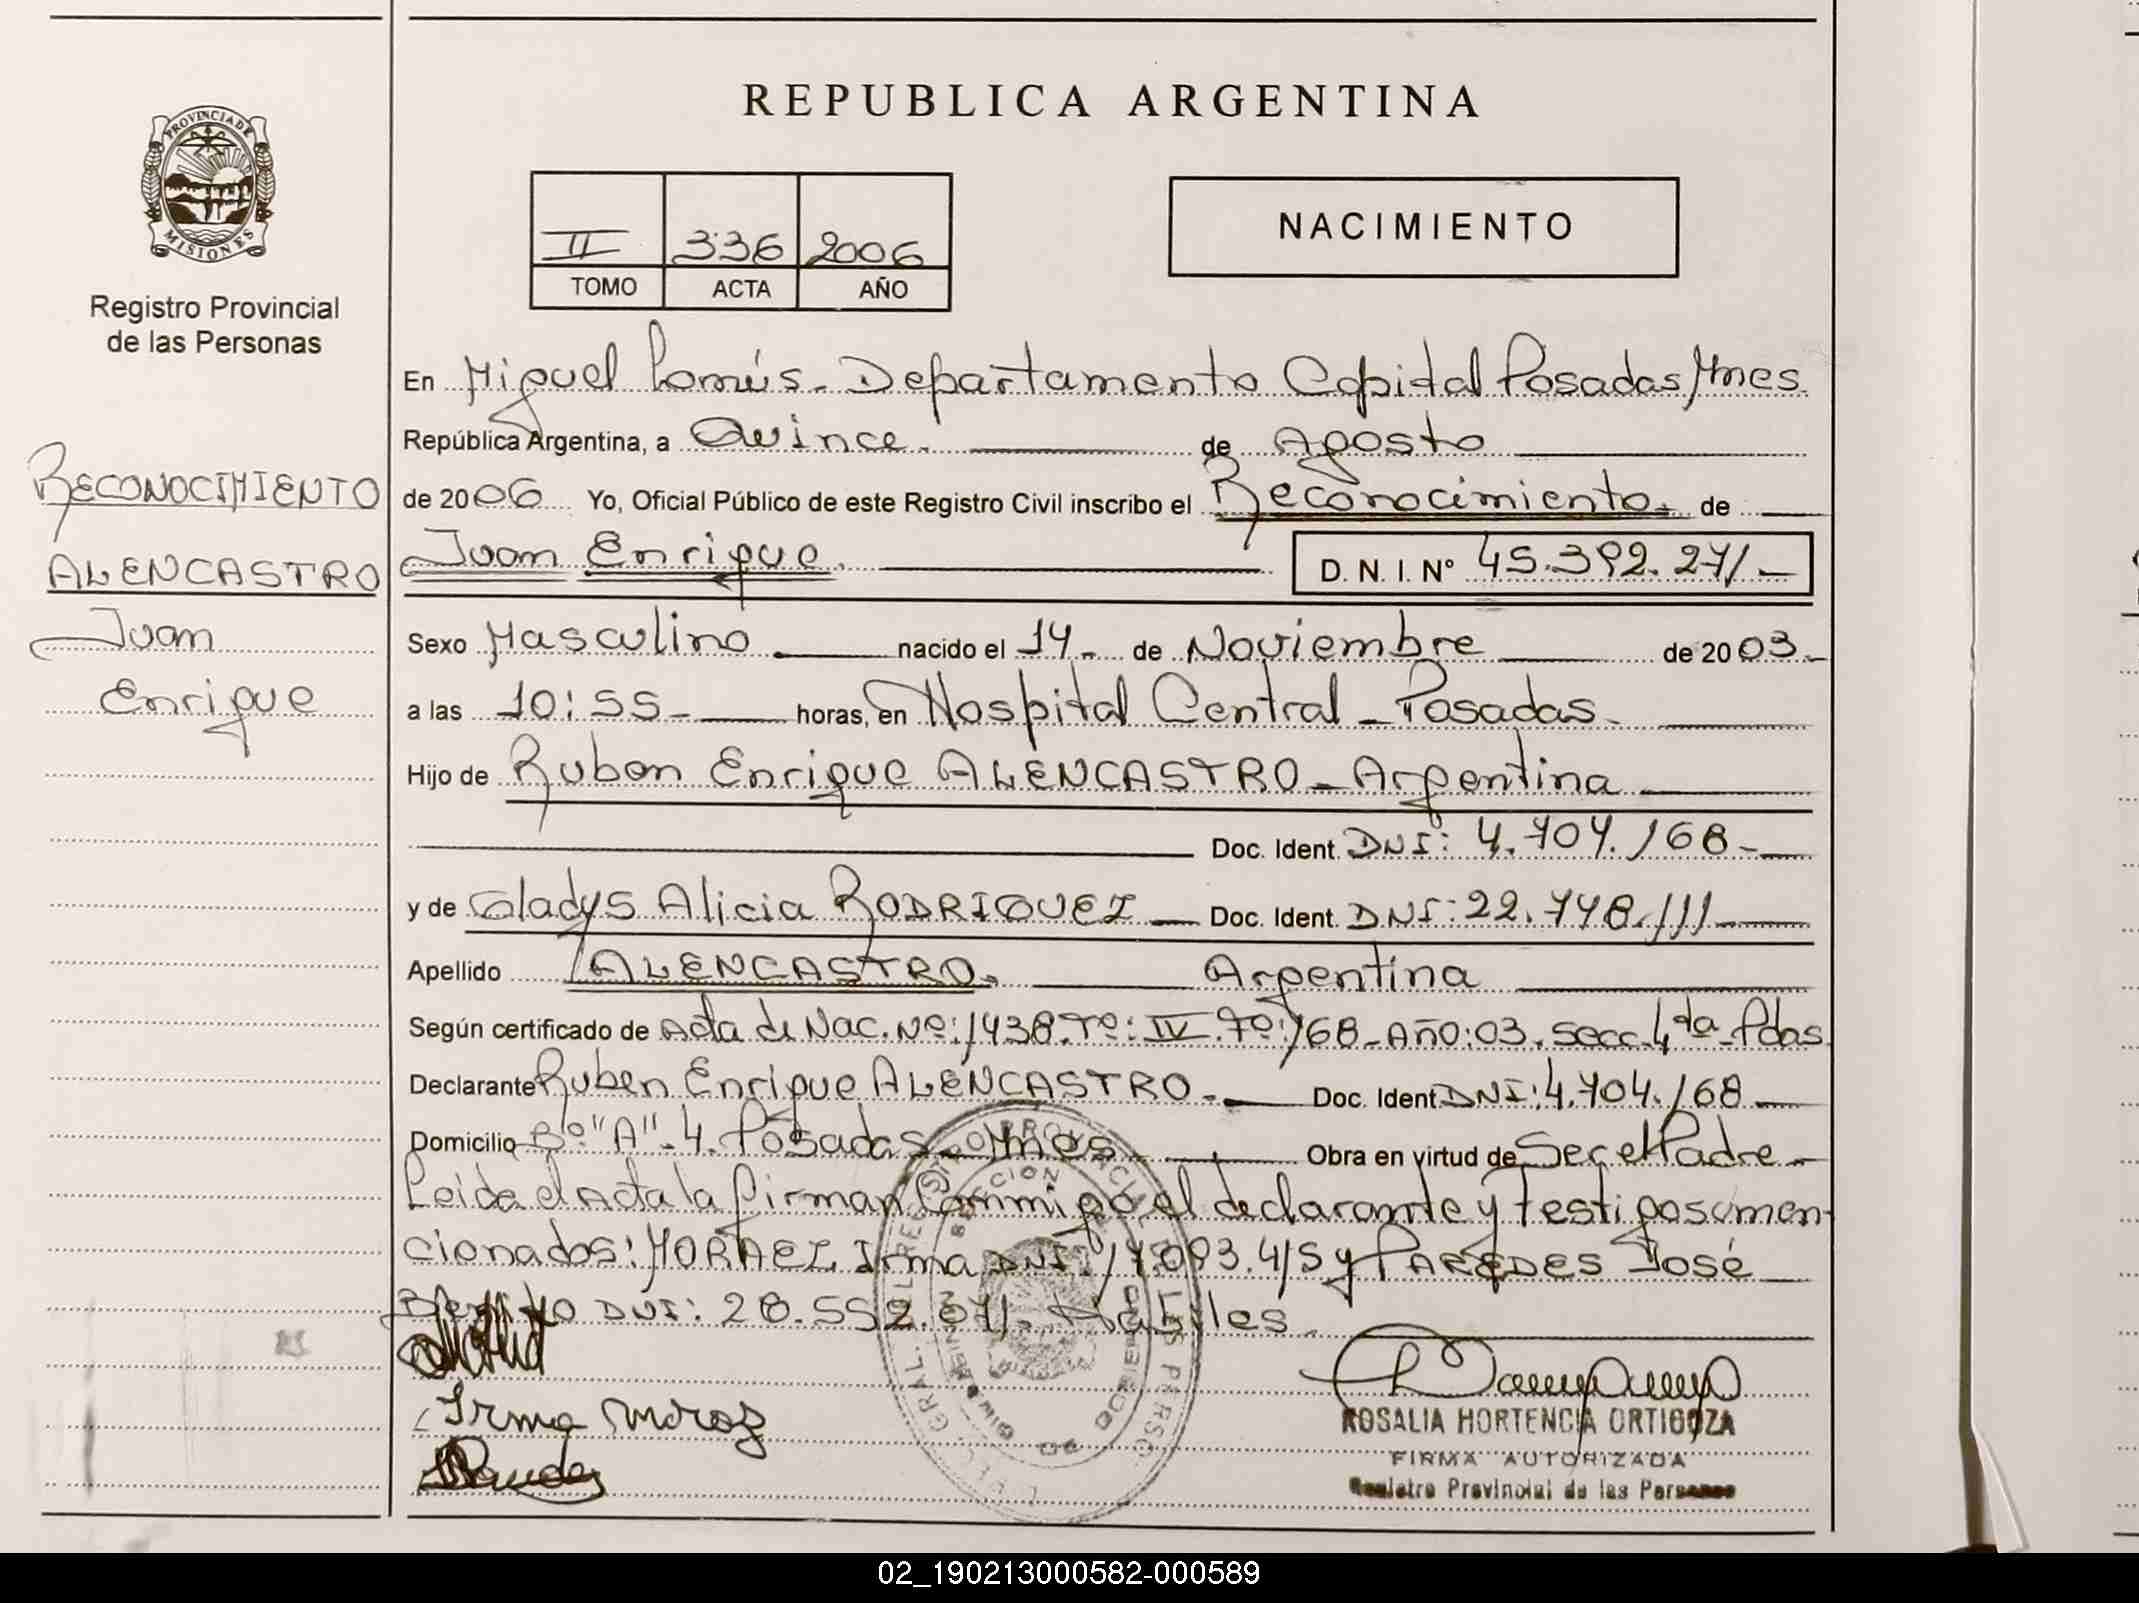 REPUBLICA ARGENTINA
PROVINCIA DE
MISIONES
Registro Provincial
de las Personas
II 336 2006
TOMO ACTA AÑO
NACIMIENTO
En Miguel Lanús - Departamento Capital Posadas Mnes.
República Argentina, a Quince. de Agosto
RECONOCIMIENTO
de 2006 Yo, Oficial Público de este Registro Civil inscribo el Reconocimiento. de
ALENCASTRO
Juan Enrique. D. N. I. Nº 45.392.271-
Juan
Sexo Masculino nacido el 14- de Noviembre de 2003.-
Enrique
a las 10:55- horas, en Hospital Central - Posadas.
Hijo de Ruben Enrique ALENCASTRO - Argentina
Doc. Ident. DNI: 4.704.168-
y de Gladys Alicia RODRIGUEZ Doc. Ident. DNI: 22.748.111-
Apellido ALENCASTRO. Argentina
Según certificado de Acta de Nac. Nº: 1438. Tº: IV. Fº: 168 - AÑO: 03. Secc. 4ta - Pdas.
Declarante Ruben Enrique ALENCASTRO. Doc. Ident DNI: 4.704.168
Domicilio Bº "A"-4. Posadas Mnes Obra en virtud de Ser el Padre
Leida el Acta la firman Conmigo el declarante y Testigos a men-
cionados: MORAEZ Irma DNI: 17.093.415 y PAREDES José
DNI: 28.552. Habiles.
Irma
ROSALIA HORTENCIA ORTIGOZA
FIRMA AUTORIZADA
Registro Provincial de las Personas
02_190213000582-000589